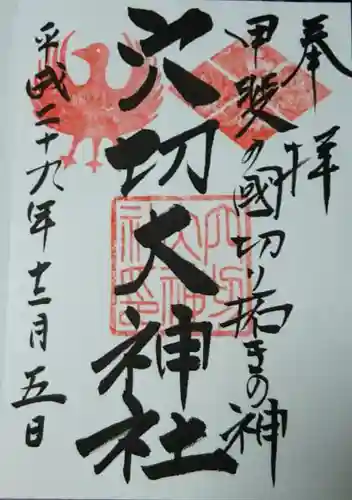 奉拝
甲斐の國切り拓きの神
穴切大神社
平成二十九年十二月五日
穴切大神社印